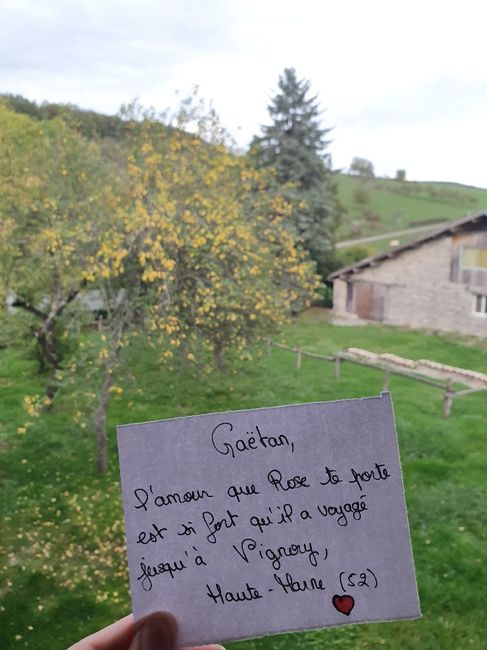 Gaëtan,
l'amour que Rose te porte
est si fort qu'il a voyagé
jusqu'à Vignory,
Haute-Marne (52)